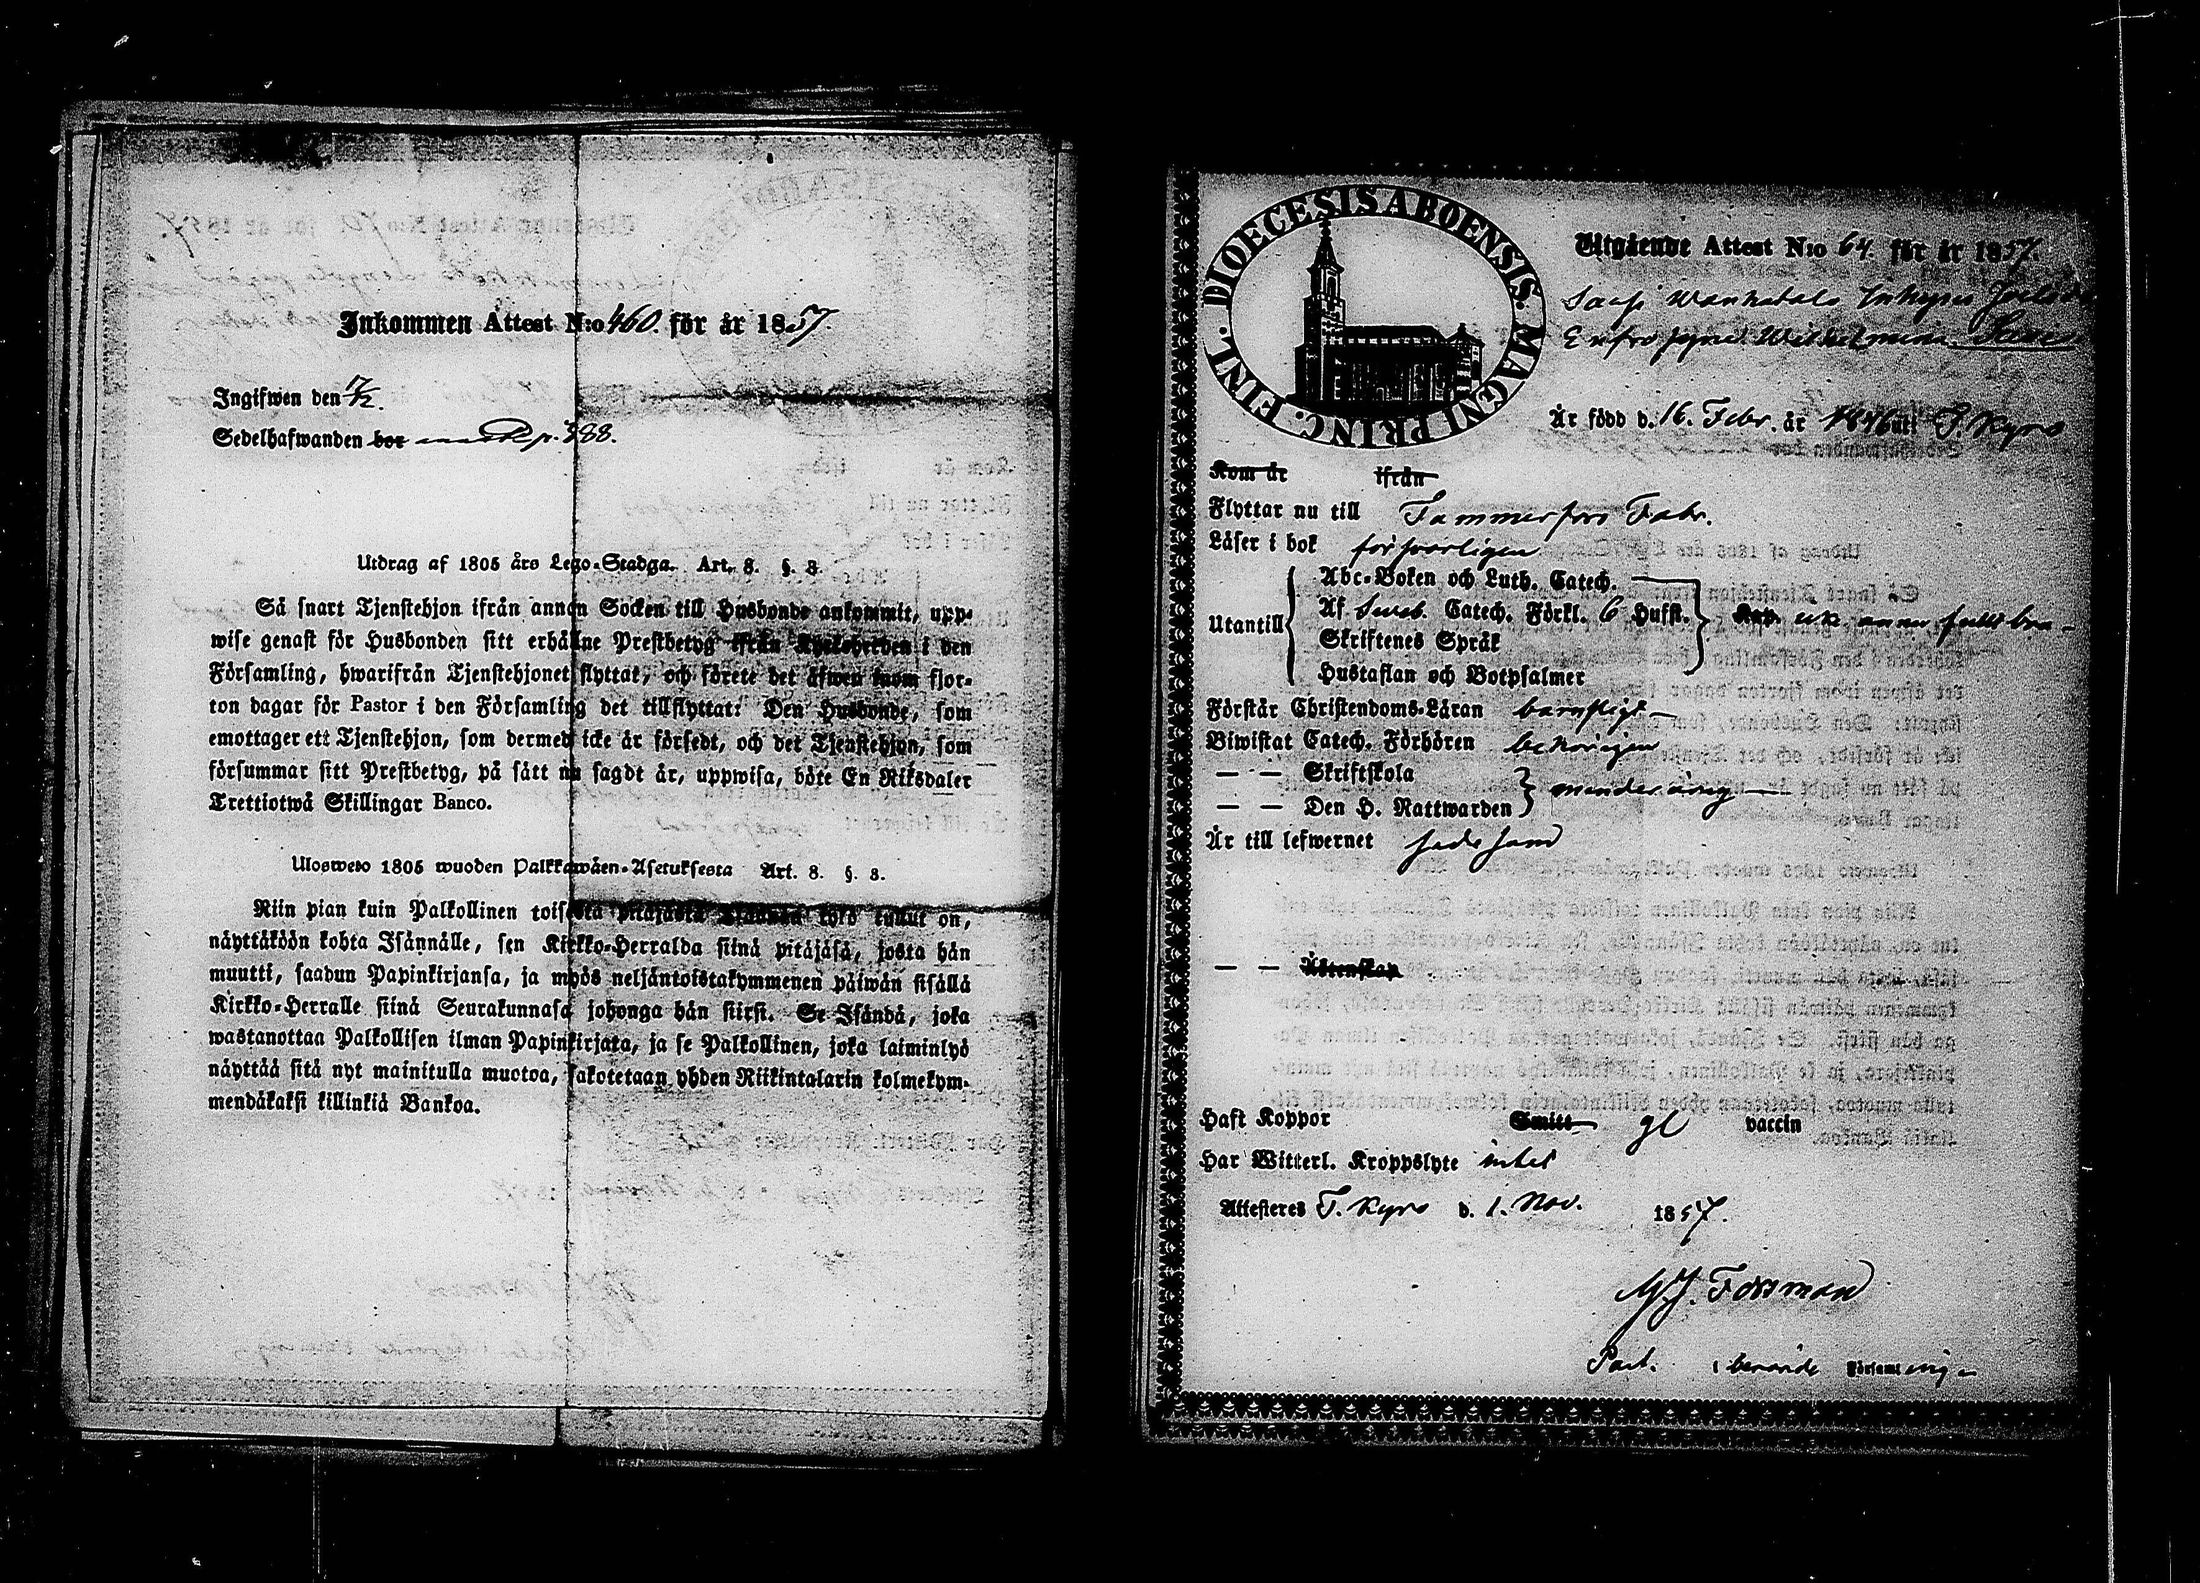 Inkommen Attest N:o 460 för år 1857.
Ingifwen den 7/12.
Sedelhafwanden bor p. 388.
Utdrag af 1805 års Lego-Stadga. Art. 8. §. 8.
Så snart Tjenstehjon ifrån annan Socken till Husbonde ankommit, upp-
wise genast för Husbonden sitt erhållne Prestbetyg ifrån Kyrkoherden i den
Församling, hwarifrån Tjenstehjonet flyttat, och förete det äfwen inom fjor-
ton dagar för Pastor i den Församling det tillflyttat: Den Husbonde, som
emottager ett Tjenstehjon, som dermed icke är försedt, och det Tjenstehjon, som
försummar sitt Prestbetyg, på sätt nu sagdt är, uppwisa, böte En Riksdaler
Trettiotwå Skillingar Banco.
Ulosweto 1805 wuoden Palkkawäen-Asetuksesta Art. 8. §. 8.
Niin pian kuin Palkollinen toisesta pitäjästä Isännän tykö tullut on,
näyttäköön kohta Isännälle, sen Kirkko-Herralda siinä pitäjäsä, josta hän
muutti, saadun Papinkirjansa, ja myös neljäntoistakymmenen päiwän sisällä
Kirkko-Herralle siinä Seurakunnasa johonga hän siirsi. Se Isändä, joka
wastanottaa Palkollisen ilman Papinkirjata, ja se Palkollinen, joka laiminlyö
näyttää sitä nyt mainitulla muotoa, sakotetaan yhden Riikintalarin kolmekym-
mendäkaksi killinkiä Bankoa.
DIOECESIS ABOENSIS. MAGNI PRINC. FINL.
Utgående Attest N:o 64. för år 1857.
Inhyses
Eufrosyne Wilhelmina
Är född d. 16. Febr. år 1846 uti T. Kyro
Kom år ifrån
Flyttar nu till Tammerfors Fabr.
Läser i bok försvarligen
Abc-Boken och Luth. Catech.
Utantill Af Sweb. Catech. Förkl. 6 Hufst. ännu fullt bra
Skriftenes Språk
Hustaflan och Botpsalmer
Förstår Christendoms-Läran barnsligt
Biwistat Catech. Förhören behörigen
— — Skriftskola
— — Den H. Nattwarden minderårig
Är till lefwernet sedesam
— — Äktenskap
Haft Koppor Smitt- gl vaccin
Har Witterl. Kroppslyte intet
Attesteres T. Kyro d. 1. Nov. 1857.
Forsman
Past. i berörde Församling